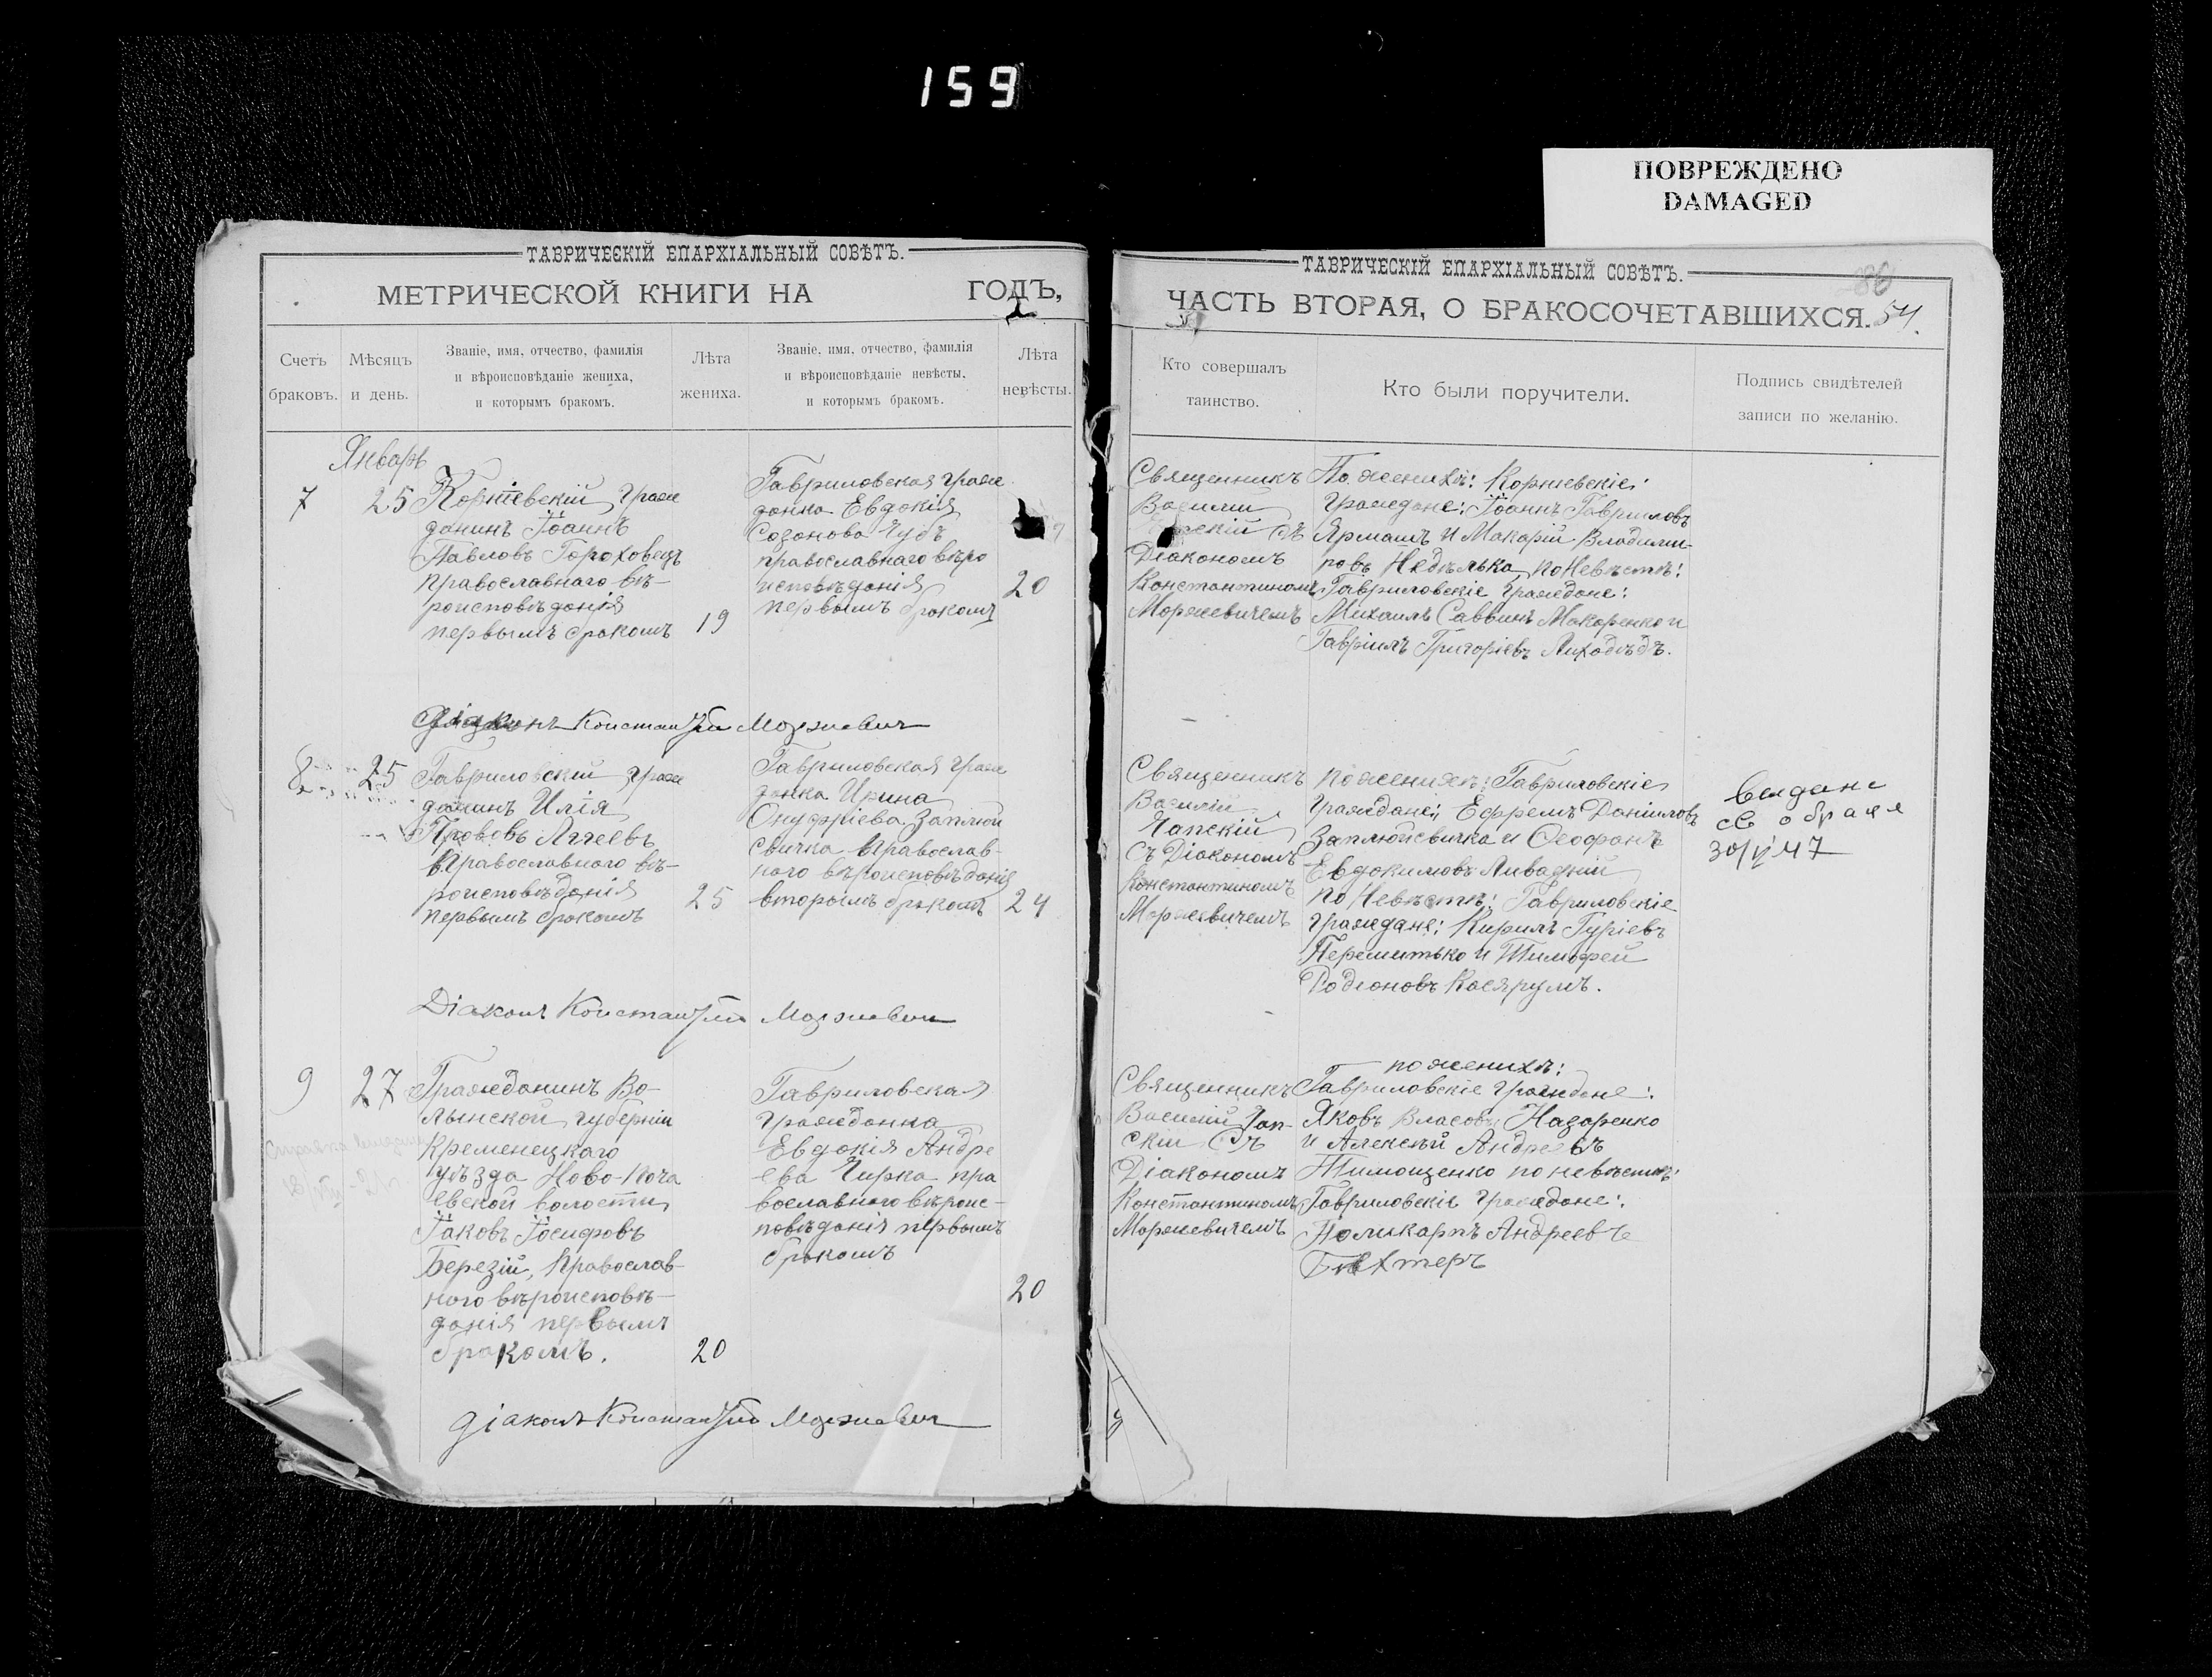 159
ПОВРЕЖДЕНО
DAMAGED
ТАВРИЧЕСКІЙ ЕПАРХІАЛЬНЫЙ СОВѢТЪ.
МЕТРИЧЕСКОЙ КНИГИ НА ГОДЪ,
Счетъ браковъ.
Мѣсяцъ и день.
Званіе, имя, отчество, фамилія
и вѣроисповѣданіе жениха,
и которымъ бракомъ.
Лѣта жениха.
Званіе, имя, отчество, фамилія
и вѣроисповѣданіе невѣсты,
и которымъ бракомъ.
Лѣта невѣсты.
Январь
7
25
Корніевскій граж
данинъ Іоаннъ
Павловъ Гороховецъ
православнаго вѣ-
роисповѣданія
первымъ бракомъ
19
Гавриловская граж
данка Евдокія
Созонова Чубъ
православнаго вѣро
исповѣданія
первымъ бракомъ
20
Діаконъ Константинъ Моржевичъ
8
25
Гавриловскій граж
данинъ Илія
Аггеевъ
Православнаго вѣ-
роисповѣданія
первымъ бракомъ
25
Гавриловская граж
данка Ирина
Онуфріева Заплюй
свичка Православ-
наго вѣроисповѣданія
вторымъ бракомъ
24
Діаконъ Константинъ Моржевичъ
9
27
Гражданинъ Во-
лынской губерніи
Кременецкаго
уѣзда Ново-Поча
евской волости
Іаковъ Іосифовъ
Березій, Православ-
наго вѣроисповѣ-
данія первымъ
бракомъ.
20
Гавриловская
гражданка
Евдокія Андре
ева Чирка пра
вославнаго вѣроис-
повѣданія первымъ
бракомъ
20
діаконъ Константинъ Моржевичъ
ТАВРИЧЕСКІЙ ЕПАРХІАЛЬНЫЙ СОВѢТЪ.
ЧАСТЬ ВТОРАЯ, О БРАКОСОЧЕТАВШИХСЯ. 54.
Кто совершалъ
таинство.
Кто были поручители.
Подпись свидѣтелей
записи по желанію.
Священникъ
Василій
скій съ
Діакономъ
Константиномъ
Моржевичемъ
По женихѣ: Корніевскіе
граждане: Іоаннъ Гавриловъ
Ярмашъ и Макарій Владими-
ровъ Недѣлька, по Невѣстѣ:
Гавриловскіе граждане:
Михаилъ Саввинъ Макаренко и
Гавріилъ Григоріевъ Лиходѣдъ.
Священникъ
Василій
Чапскій
съ Діакономъ
Константиномъ
Моржевичемъ
по женихѣ: Гавриловскіе
граждане: Ефремъ Даніиловъ
Заплюйсвичка и Ѳеофанъ
Евдокимовъ Ливадній
по Невѣстѣ: Гавриловскіе
граждане: Кирилъ Гуріевъ
Перемитько и Тимофей
Родіоновъ Касярумъ.
выдано
св о браке
47
Священникъ
Василій Чап-
скій Съ
Діакономъ
Константиномъ
Моржевичемъ
по женихѣ:
Гавриловскіе граждане:
Яковъ Власовъ Назаренко
и Алексѣй Андреевъ
Тимощенко по невѣстѣ:
Гавриловскіе граждане:
Поликарпъ Андреевъ